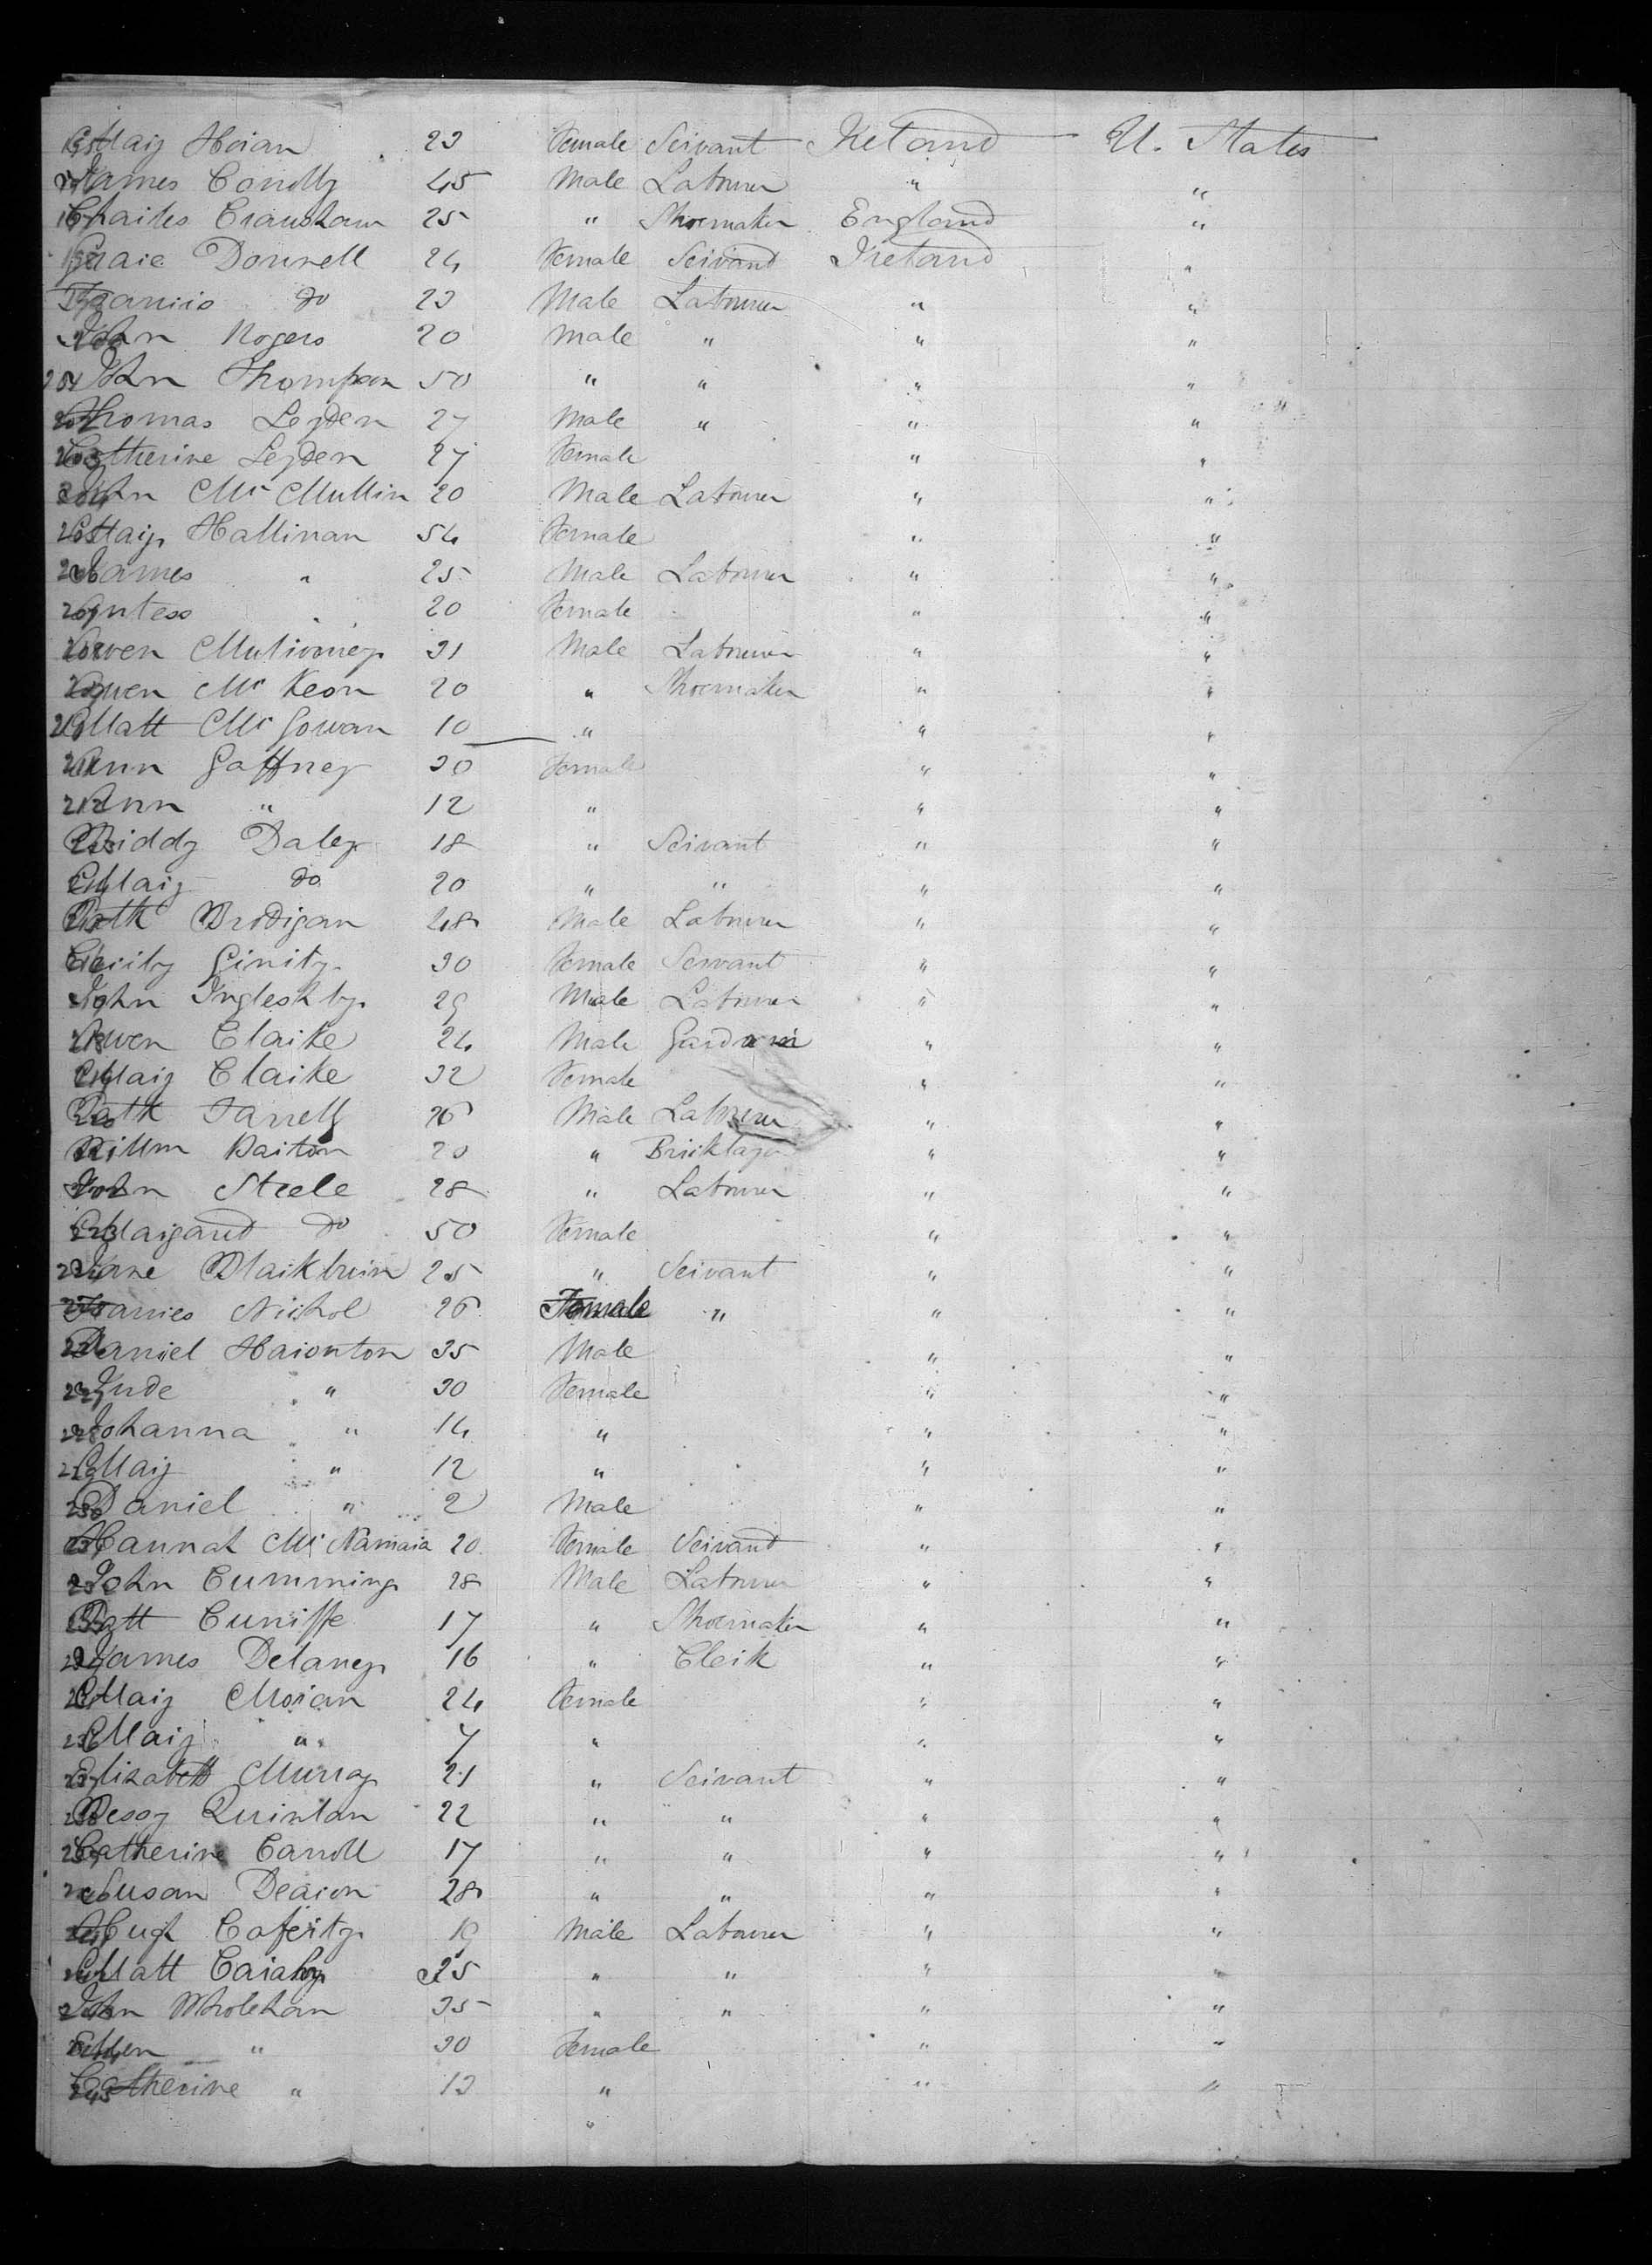 Mary Horan 23 Female Servant Ireland U. States
James Conolly 45 Male Labourer " "
Charles Craushaw 25 " Shoemaker England "
Grace Donnell 24 Female Servant Ireland "
Francis do 23 Male Labourer " "
John Rogers 20 Male " " "
201 John Thompson 50 " " " "
202 Thomas Leyden 27 Male " " "
203 Catherine Leyden 27 Female " "
204 John McMullin 20 Male Labourer " "
205 Mary Hallinan 54 Female " "
206 James " 25 Male Labourer " "
207 " 20 Female " "
208 Owen Mulvoney 31 Male Labourer " "
209 Owen McKeon 20 " Shoemaker " "
210 Matt McGowan 10 " " "
211 Ann Gaffney 30 Female " "
212 Ann " 12 " " "
213 Biddy Daley 18 " Servant " "
214 Mary do 20 " " " "
215 Patk Bridigan 48 Male Labourer " "
216 Cicily Ginity 30 Female Servant " "
217 John Ingleshby 29 Male Labourer " "
218 Owen Clarke 24 Male Gardner " "
219 Mary Clarke 32 Female " "
220 Patk Farrell 26 Male Labourer " "
221 Willm Barton 20 " Bricklayer " "
222 John Steele 28 " Labourer " "
223 Margaret do 50 Female " "
224 Jane Blackburn 25 " Servant " "
225 Frances Nichol 26 Female " " "
226 Daniel Haronton 35 Male " "
227 Jude " 30 Female " "
228 Johanna " 14 " " "
229 Mary " 12 " " "
230 Daniel " 2 Male " "
231 Hannah McNamara 20 Female Servant " "
232 John Cumming 28 Male Labourer " "
233 Patt Cuniffe 17 " Shoemaker " "
234 James Delaney 16 " Clerk " "
235 Mary Moran 24 Female " "
236 Mary " 7 " " "
237 Elizabeth Murray 21 " Servant " "
238 Bessy Quinlan 22 " " " "
239 Catherine Carroll 17 " " " "
240 Susan Deacon 28 " " " "
241 Hugh Caferty 19 Male Labourer " "
242 Matt Carahy 25 " " " "
243 John Wholehan 35 " " " "
244 Ellen " 30 Female " "
245 Catherine " 13 " " "
"